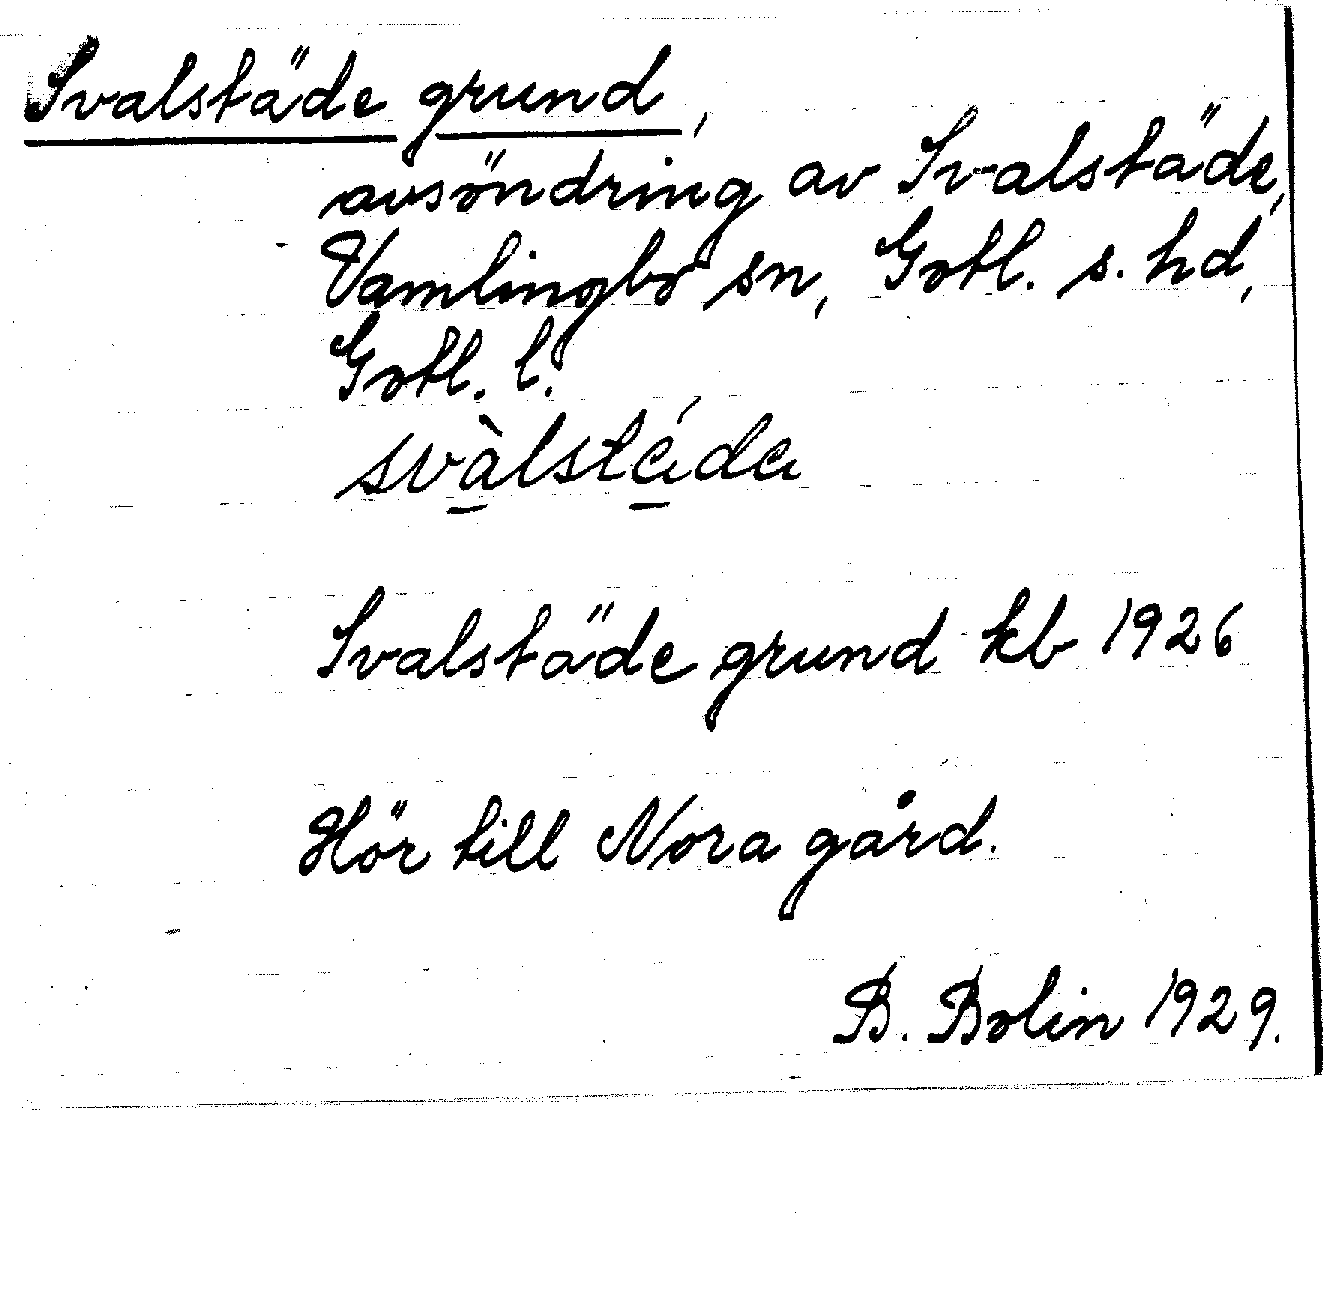 Svalstäde grund,
avsöndring av Svalstäde,
Vamlingbo sn, Gotl. s. hd,
Gotl. l.
svàlstáda
Svalstäde grund kb 1926
Hör till Nora gård.
B. Bolin 1929.